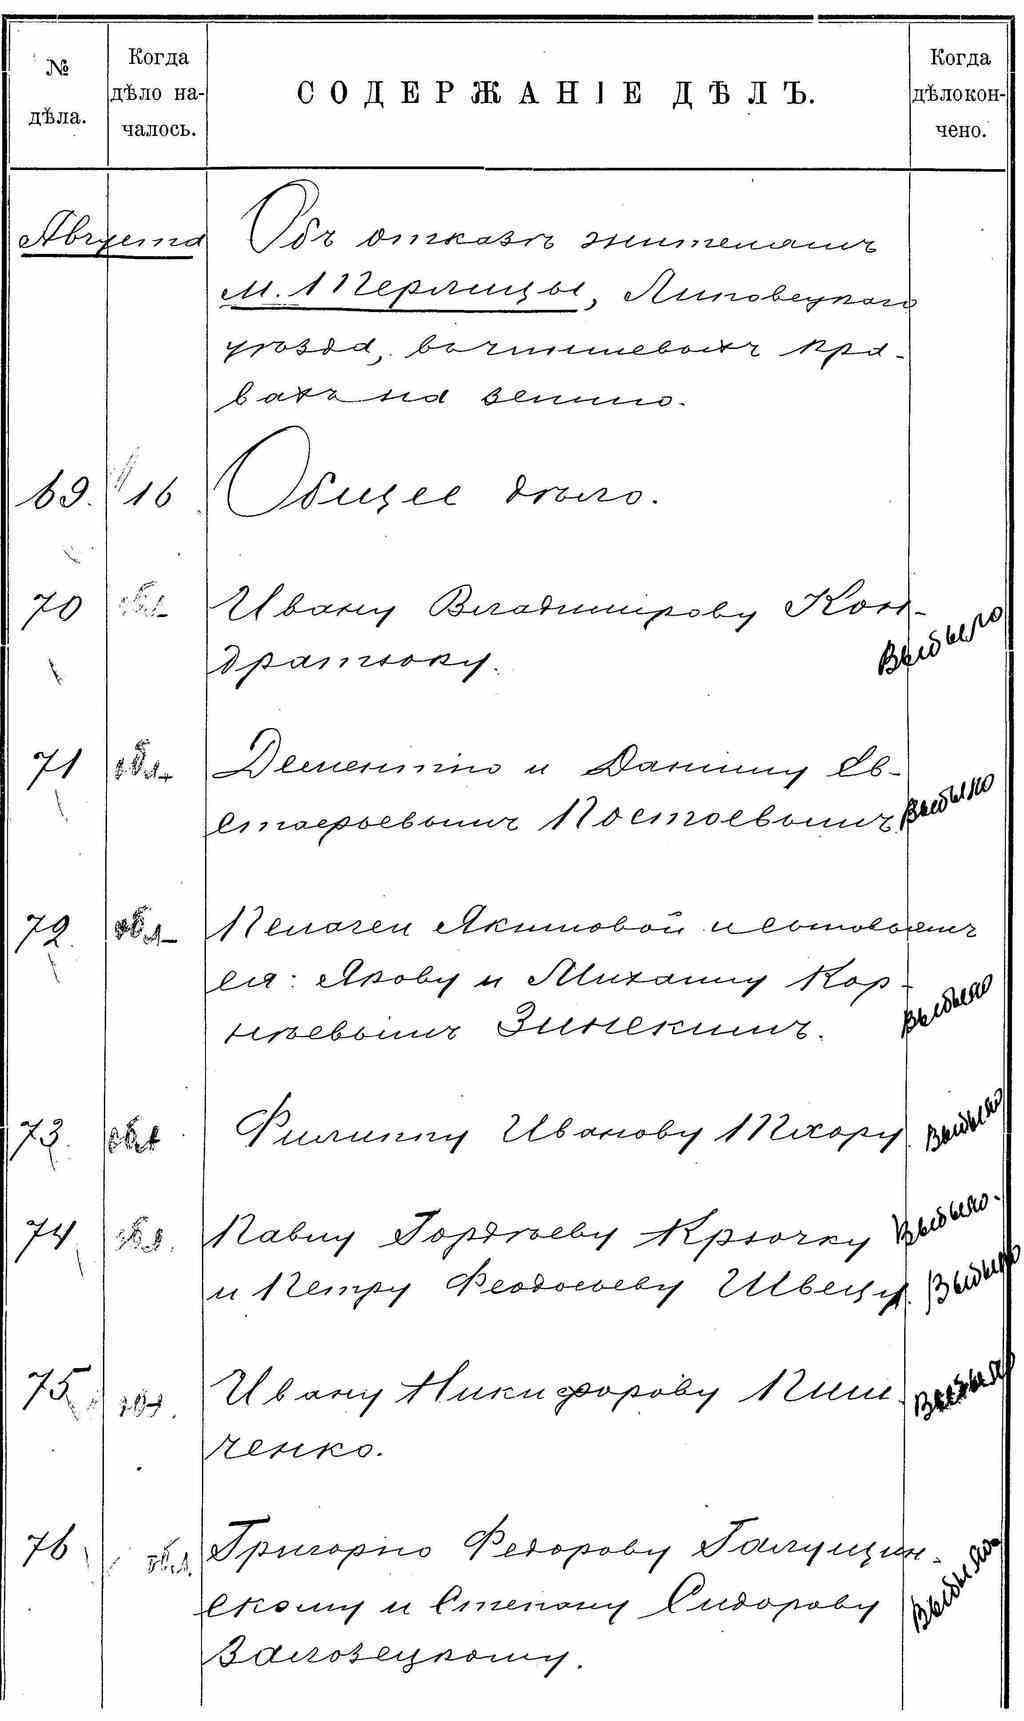 № дѣла.
Когда дѣло на-чалось.
СОДЕРЖАНІЕ ДѢЛЪ.
Когда дѣло кон-чено.
Августа
Объ отказѣ жителямъ
м. Терлицы, Липовецкаго
уѣзда, въ чиншевыхъ пра-
вахъ на землю.
69. 16 Общее дѣло.
70 обл. Ивану Владимірову Кон-
дратюку. Выбыло
71 обл. Дементію и Данилу Ев-
стафьевымъ Постоевымъ Выбыло
72 обл. Пелагеи Якимовой и сыновьямъ
ея: Якову и Михаилу Кор-
нѣевымъ Зинскимъ. Выбыло
73. обл. Филиппу Иванову Тхору Выбыло
74 обл. Павлу Гордѣеву Крючку Выбыло.
и Петру Феодосьеву Швецу. Выбыло
75 обл. Ивану Никифорову Пин-
ченко. Выбыло
76 обл. Григорію Федорову Галущин-
скому и Степану Сидорову Выбыло
Залозецкому.